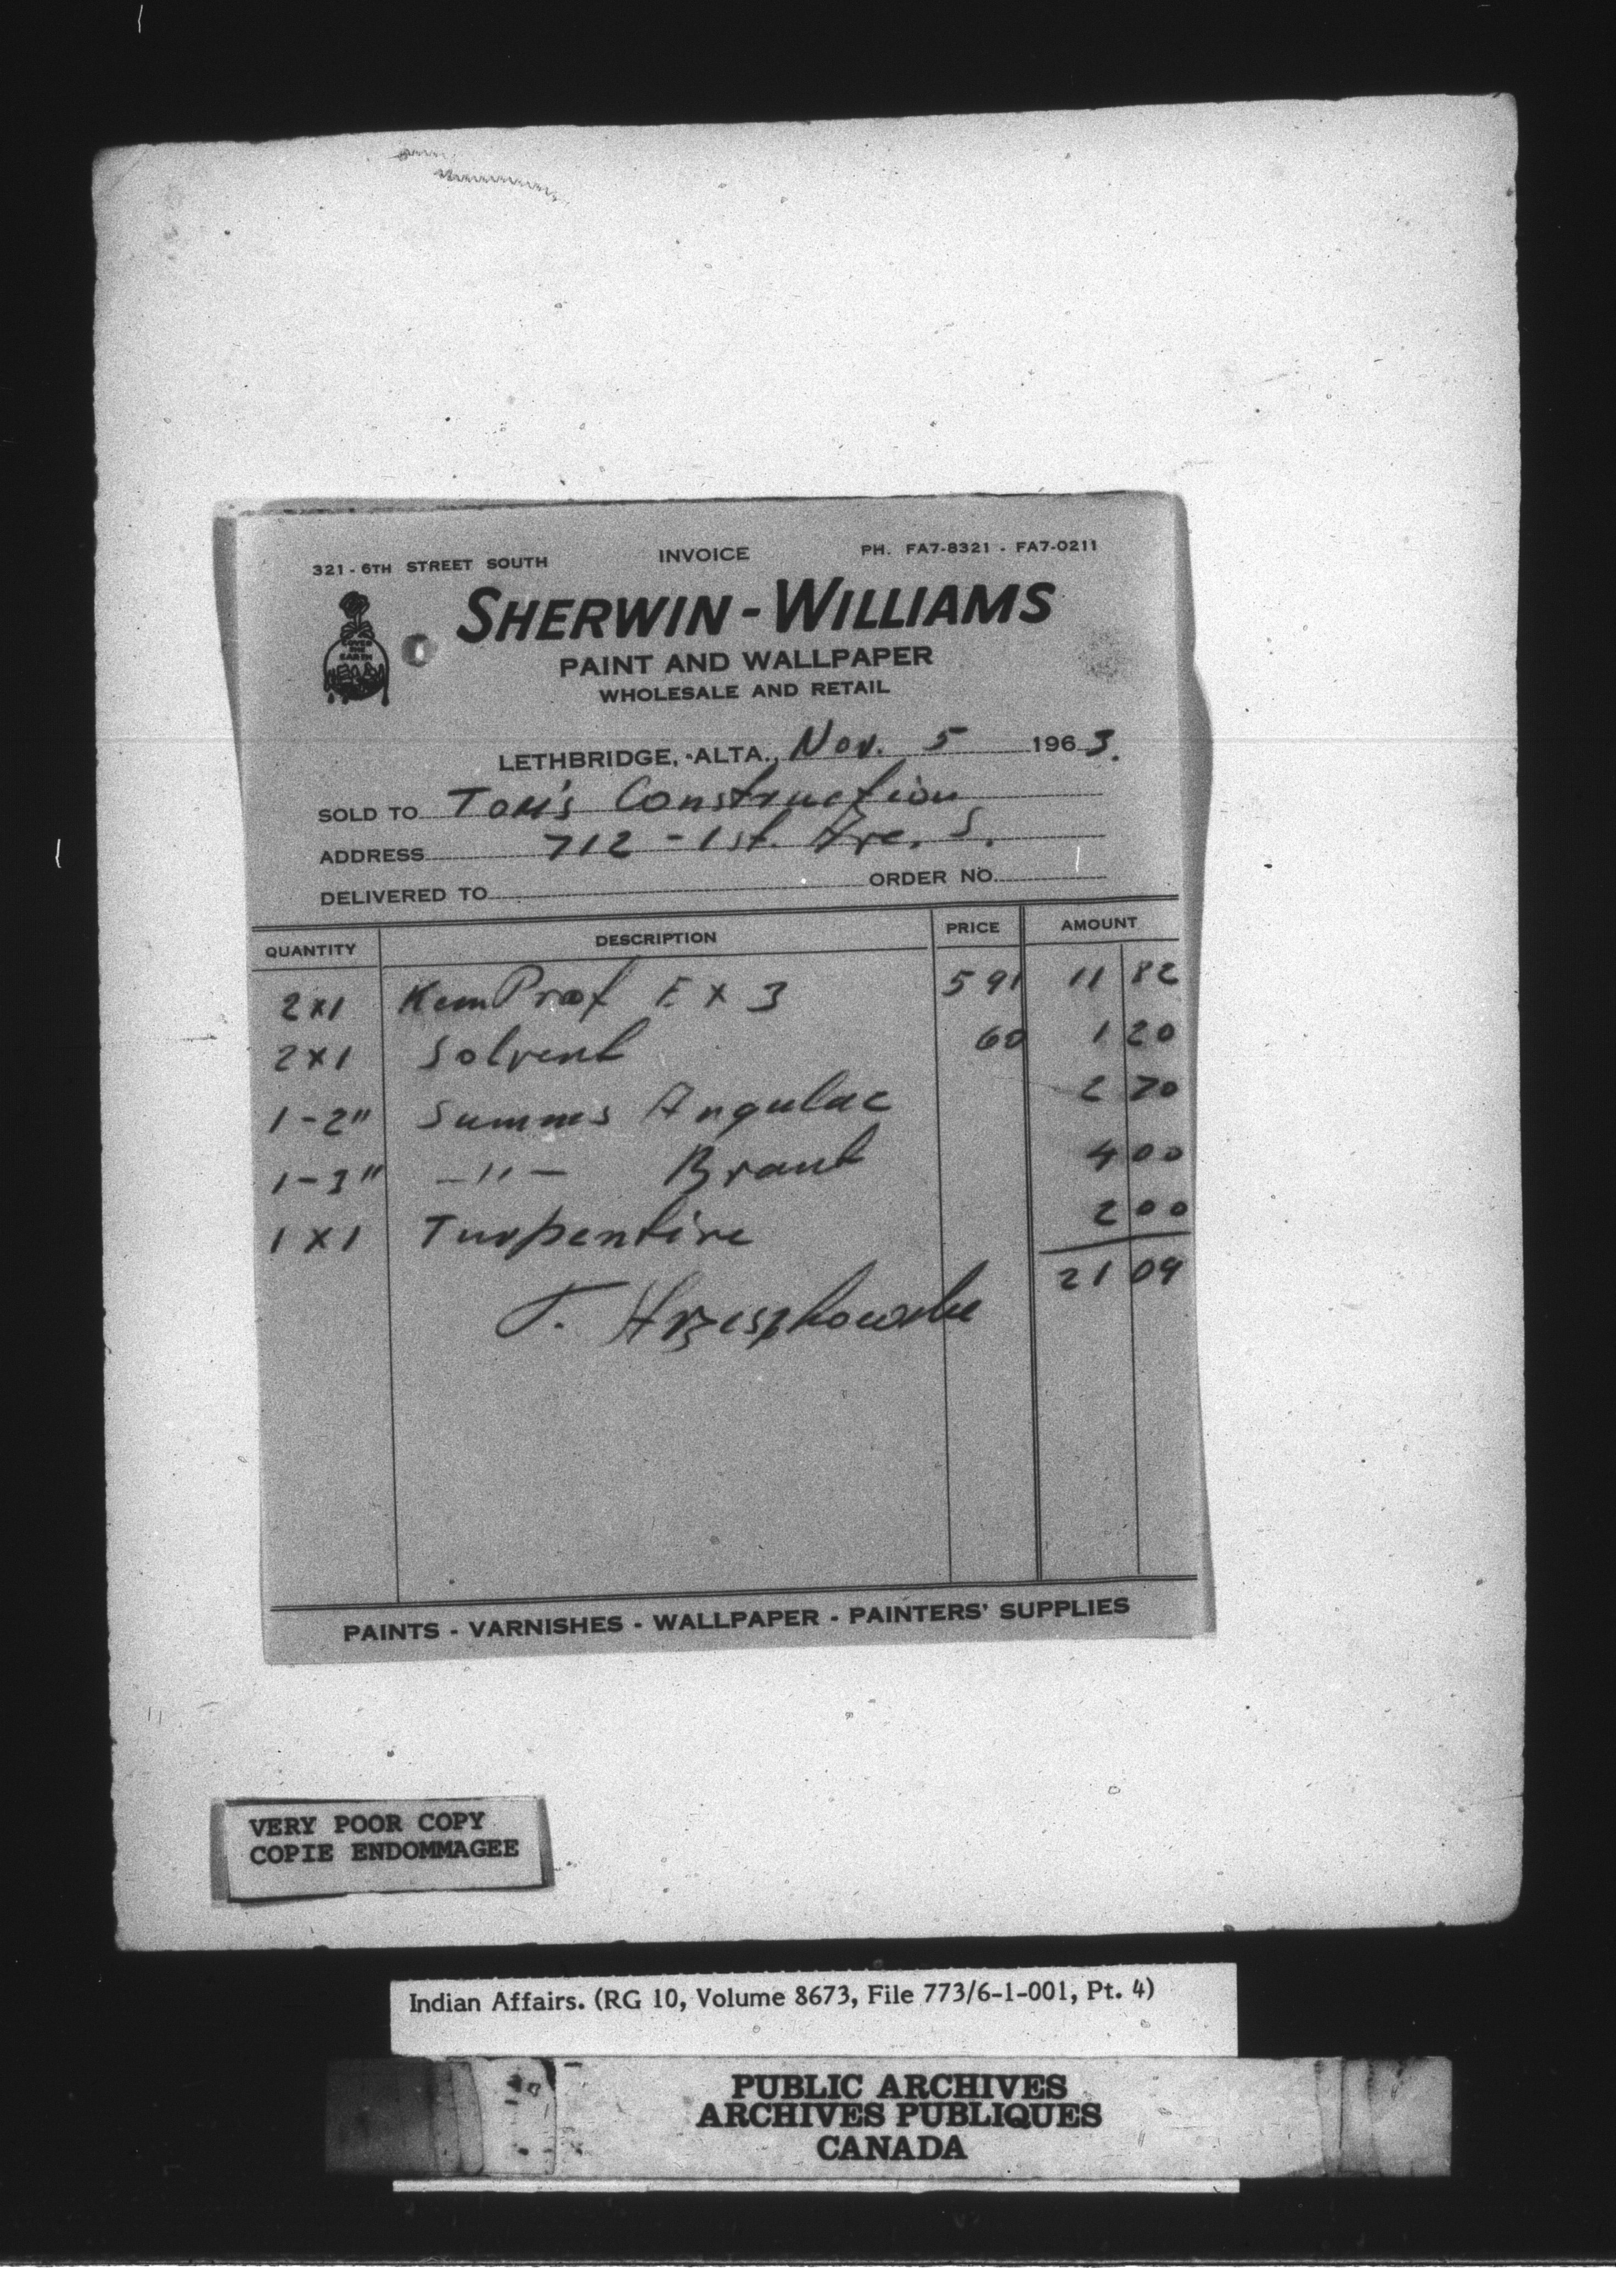 321 - 6TH STREET SOUTH INVOICE PH. FA7-8321 - FA7-0211
COVER THE EARTH
SHERWIN-WILLIAMS
PAINT AND WALLPAPER
WHOLESALE AND RETAIL
LETHBRIDGE, ALTA., Nov. 5 1963.
SOLD TO Tom's Construction
ADDRESS 712 - 1st. Ave. S.
DELIVERED TO ORDER NO.
QUANTITY DESCRIPTION PRICE AMOUNT
2x1 Kem Prof E x 3 5 91 11 82
2x1 Solvent 60 1 20
1-2" Summs Angular 2 70
1-3" -"- 4 00
1x1 Turpentine 2 00
21 09
T.
PAINTS - VARNISHES - WALLPAPER - PAINTERS' SUPPLIES
VERY POOR COPY
COPIE ENDOMMAGEE
Indian Affairs. (RG 10, Volume 8673, File 773/6-1-001, Pt. 4)
PUBLIC ARCHIVES
ARCHIVES PUBLIQUES
CANADA